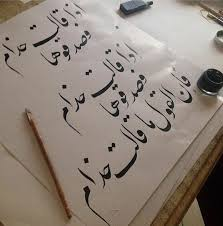 اذا قالت حذام
فصدقوها
اذا قالت حذام
فصدقوها
فان القول ما قالت حذام